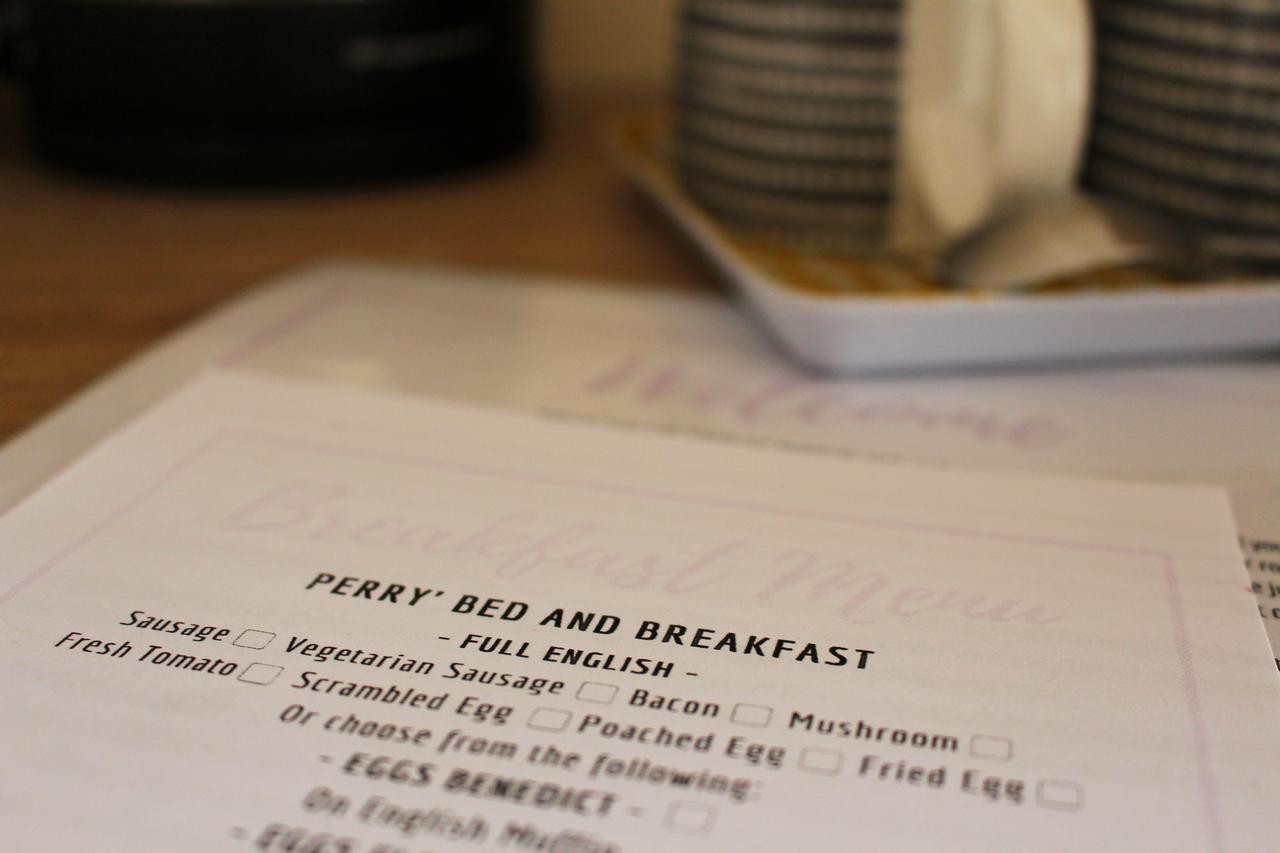 Welcome
Breakfast Menu
PERRY' BED AND BREAKFAST
- FULL ENGLISH -
Sausage Vegetarian Sausage Bacon Mushroom
Fresh Tomato Scrambled Egg Poached Egg Fried Egg
Or choose from the following:
- EGGS BENEDICT -
On English Muffin
- EGGS